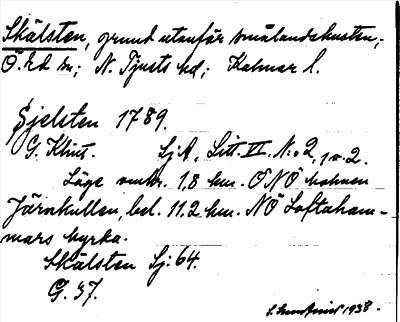 Skälsten, grund utanför smålandskusten;
Ö. hd sn; N. Tjusts hd; Kalmar l.
Sjelsten 1789.
G. Klint. SjA, Litt. VI. N:o 2, 1 o. 2.
Läge omkr. 1,8 km. ONO holmen
Järnkullen, bel. 11.2 km. NÖ Loftaham-
mars kyrka.
Skälsten Sj: 64.
G. 37.
1938.